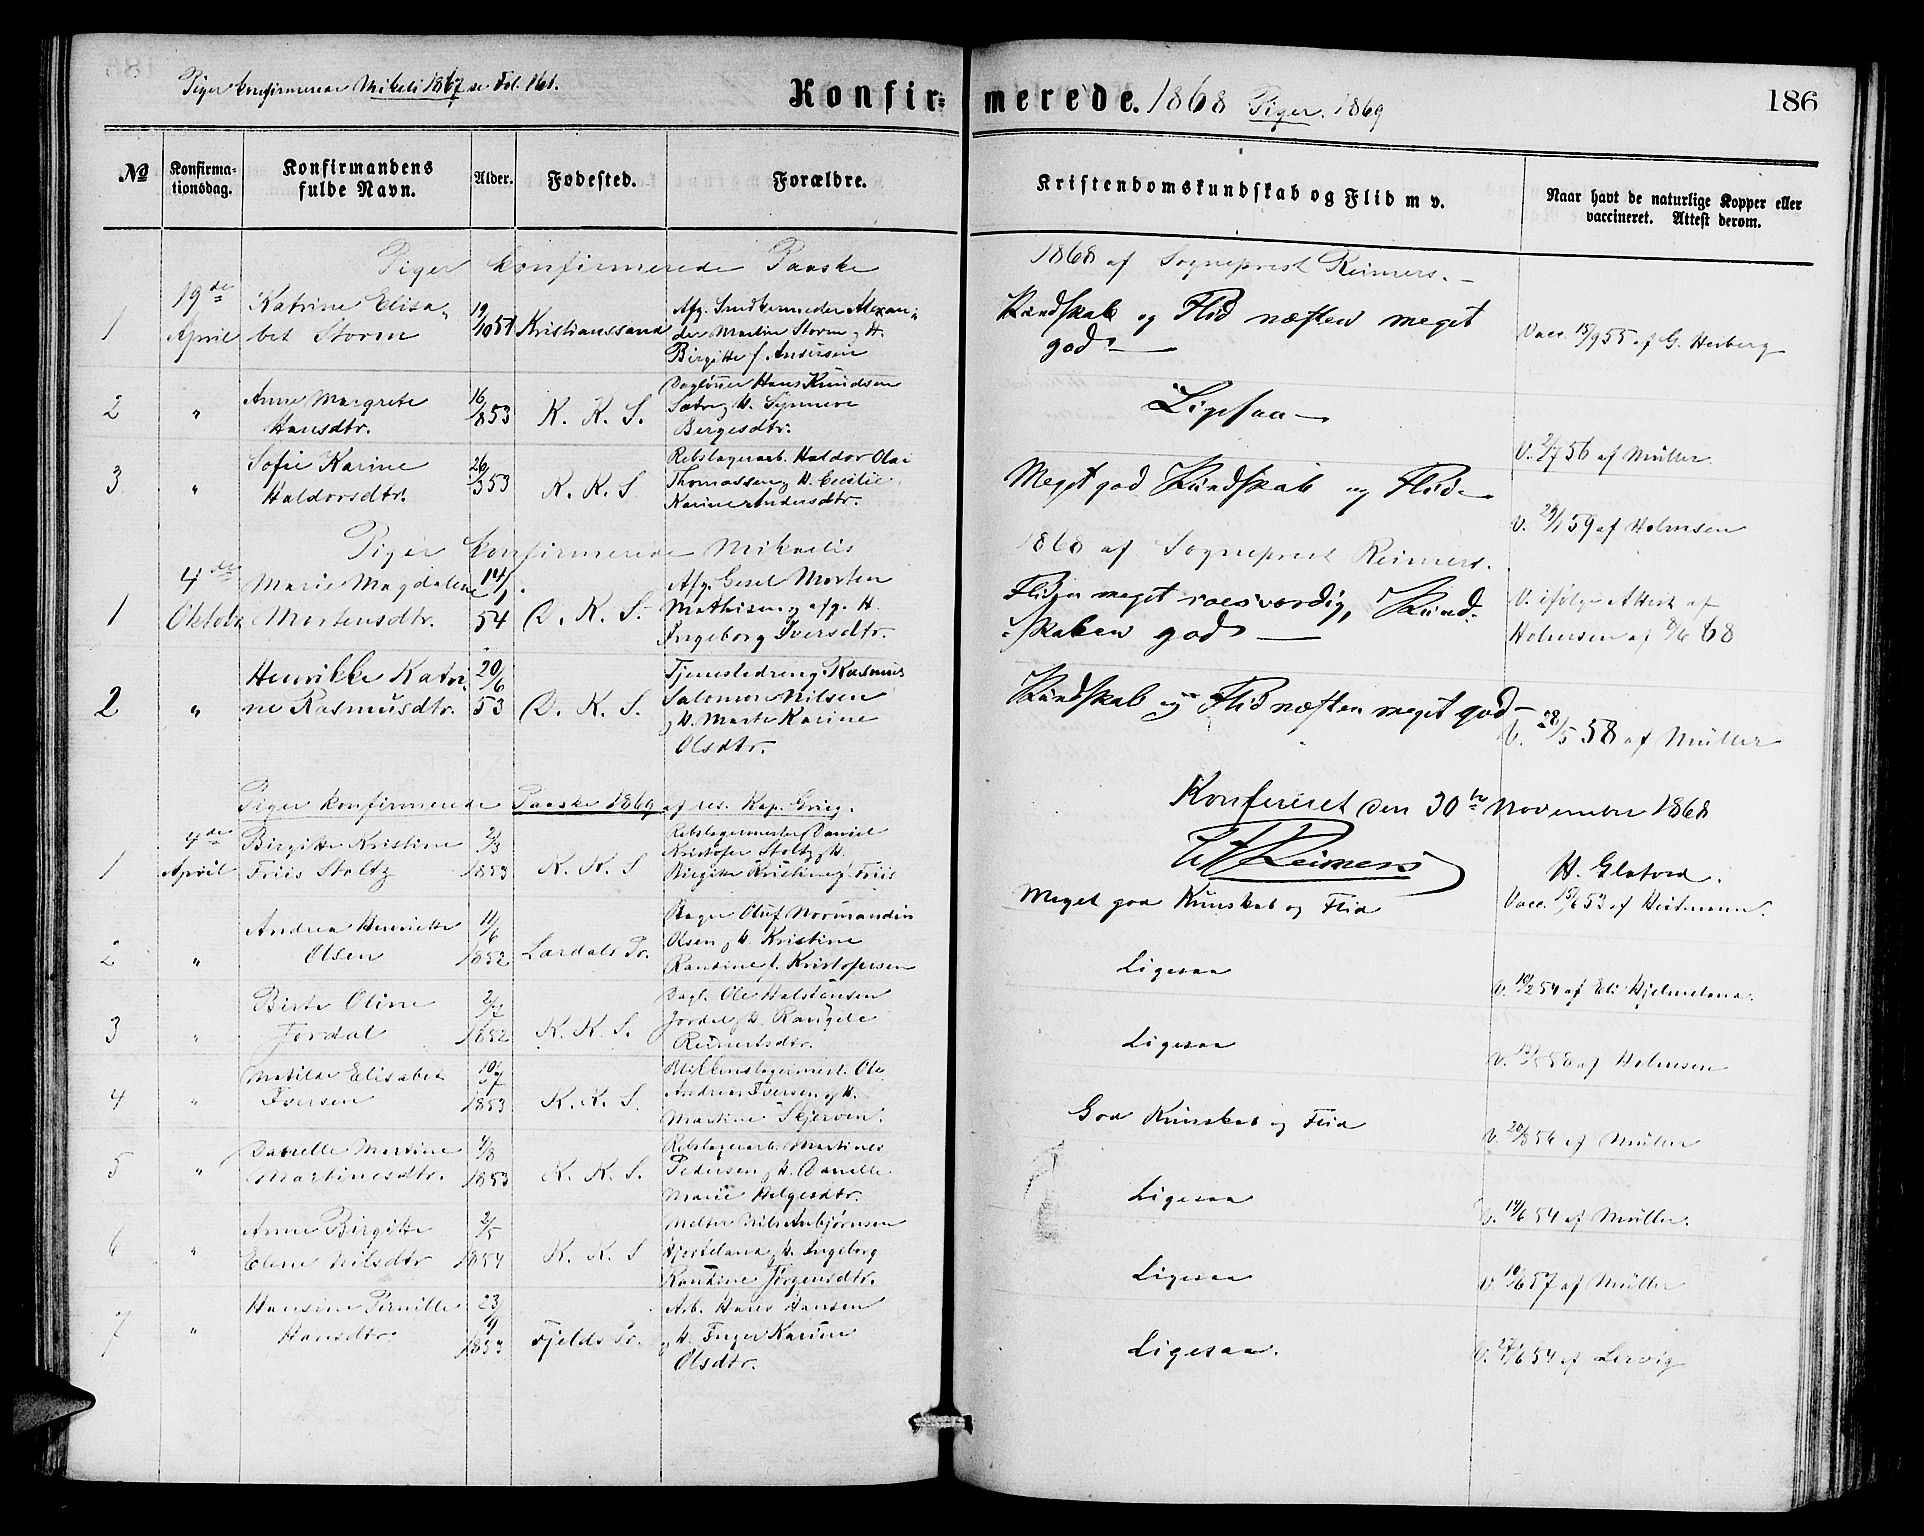 Piger konfirmerede Mikeli 1867 se Fol. 161.
Konfir= merede. 1868 Piger. 1869
186
No
Konfirma-
tionsdag.
Konfirmandens
fulde Navn.
Alder.
Fødested.
Forældre.
Kristendomskundskab og Flid m v.
Naar havt de naturlige Kopper eller
vaccineret. Attest derom.
Piger konfirmerede Paaske 1868 af Sogneprest Reimers.
1
19de
April
Katrine Elisa-
bet Storm
19/10 51
Kristianssand
Afg. Smedkermeder Alexan-
der Martin Storm og H.
Birgitte f. Andersen
Kundskab og Flid næsten meget
god
Vacc. 15/9 55 af G. Herberg
2
"
Anne Margrete
Hansdtr.
16/8 53
K. K. S.
Daglönner Hans Knudsen
Sætre og H. Synneve
Bergesdtr.
Ligesaa
V. 2/7 56 af Müller
3
"
Sofie Karine
Haldorsdtr.
26/3 53
K. K. S
Rebslagerarb. Haldor Olai
Thomassen og H. Cecilie
Karine Andersdtr.
Meget god Kundskab og Flid
V. 29/1 59 af Holmsen
Piger konfirmerede Mikaelis 1868 af Sogneprest Reimers.
1
4de
Oktobr
Marie Magdalene
Mortensdtr.
14/1
54
D. K. S.
Afg. Gesel Morten
Mathisen og afg. H.
Ingeborg Iversdtr.
Fliden meget roesværdig, Kund-
skaben god
V. ifølge Attest af
Holmsen af 8/6 68
2
"
Henrikke Katri-
ne Rasmusdtr.
20/6
53
D. K. S.
Tjenestedreng Rasmus
Salomon Nilsen
og H. Marte Karine
Olsdtr.
Kundskab og Flid næsten meget god
V. 28/5 58 af Müller
Konfereret den 30te November 1868
Reimers
H. Glatved.
Piger konfirmerede Paaske 1869 af res. Kap. Grieg.
1
4de
April
Birgitte Kristine
Friis Stoltz
2/3
1853
K. K. S
Rebslagermester Daniel
Kristofer Stoltz og H.
Birgitte Kristine f. Friis
Meget god Kunskab og Flid
Vacc. 15/6 53 af Heitmann.
2
"
Andrea Henriette
Olsen
11/6
1852
Lærdals Pr.
Bager Oluf Normandin
Olsen og H. Kristine
Rantine f. Kristofersen
Ligesaa
V. 10/2 54 af Eli Hjelmeland.
3
"
Birte Oline
Jordal
2/7
1852
K. K. S.
Dagl. Ole Halstensen
Jordal og H. Rangele
Reinertsdtr.
Ligesaa
V. 58 af Holmsen
4
"
Matilde Elisabet
Iversen
10/7
1853
K. K. S.
Blikkenslagermest. Ole
Andreas Iversen og H.
Martine Skjerven.
God Kunskab og Flid
V. 20/8 56 af Müller
5
"
Danelle Martine
Martinesdtr.
4/8
1853
K. K. S.
Rebslagerarb. Martines
Pedersen og H. Danelle
Marie Helgesdtr.
Ligesaa
V. 14/6 54 af Müller.
6
"
Anne Birgitte
Elene Nilsdtr
2/5
1854
K. K. S
Melter Nils Anbjørnsen
Hjorteland og H. Ingeborg
Rantine Jörgensdtr.
Ligesaa
V. 10/6 57 af Müller
7
"
Hansine Pernille
Hansdtr.
23/9
1853
Fjelds Pr.
Arb. Hans Hansen
og H. Inger Karine
Olsdtr.
Ligesaa.
V. 27/6 54 af Lervig